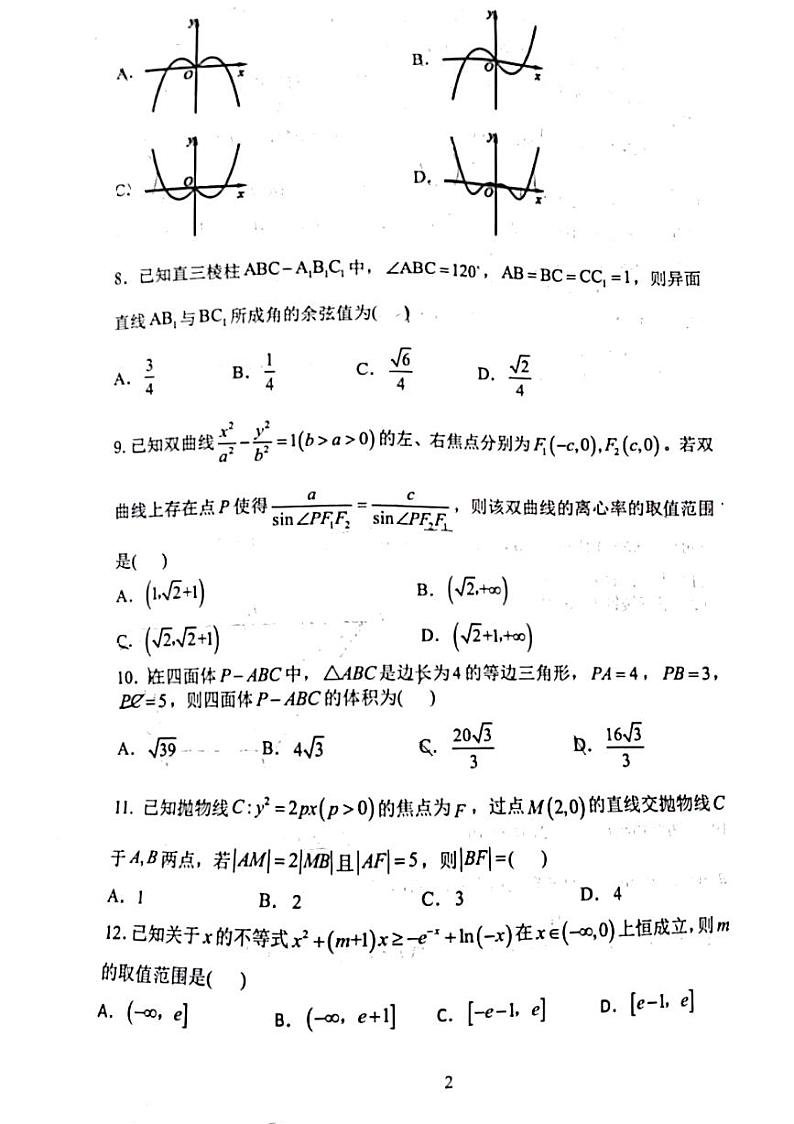 y
A.
O
x
y
B.
O
x
y
C.
O
x
y
D.
O
x
8. 已知直三棱柱 ABC-A₁B₁C₁ 中，∠ABC=120°，AB=BC=CC₁=1，则异面
直线 AB₁ 与 BC₁ 所成角的余弦值为(    )
A. 3/4  B. 1/4  C. √6/4  D. √2/4
9. 已知双曲线 x²/a² - y²/b² = 1(b>a>0) 的左、右焦点分别为 F₁(-c,0), F₂(c,0)。若双
曲线上存在点 P 使得 a/sin∠PF₁F₂ = c/sin∠PF₂F₁，则该双曲线的离心率的取值范围
是(    )
A. (1,√2+1)  B. (√2,+∞)
C. (√2,√2+1)  D. (√2+1,+∞)
10. 在四面体 P-ABC 中，△ABC 是边长为 4 的等边三角形，PA=4，PB=3，
PC=5，则四面体 P-ABC 的体积为(    )
A. √39  B. 4√3  C. 20√3/3  D. 16√3/3
11. 已知抛物线 C:y²=2px(p>0) 的焦点为 F，过点 M(2,0) 的直线交抛物线 C
于 A,B 两点，若|AM|=2|MB|且|AF|=5，则|BF|=(    )
A. 1  B. 2  C. 3  D. 4
12. 已知关于 x 的不等式 x²+(m+1)x≥-e⁻ˣ+ln(-x) 在 x∈(-∞,0) 上恒成立,则 m
的取值范围是(    )
A. (-∞, e]  B. (-∞, e+1]  C. [-e-1, e]  D. [e-1, e]
2